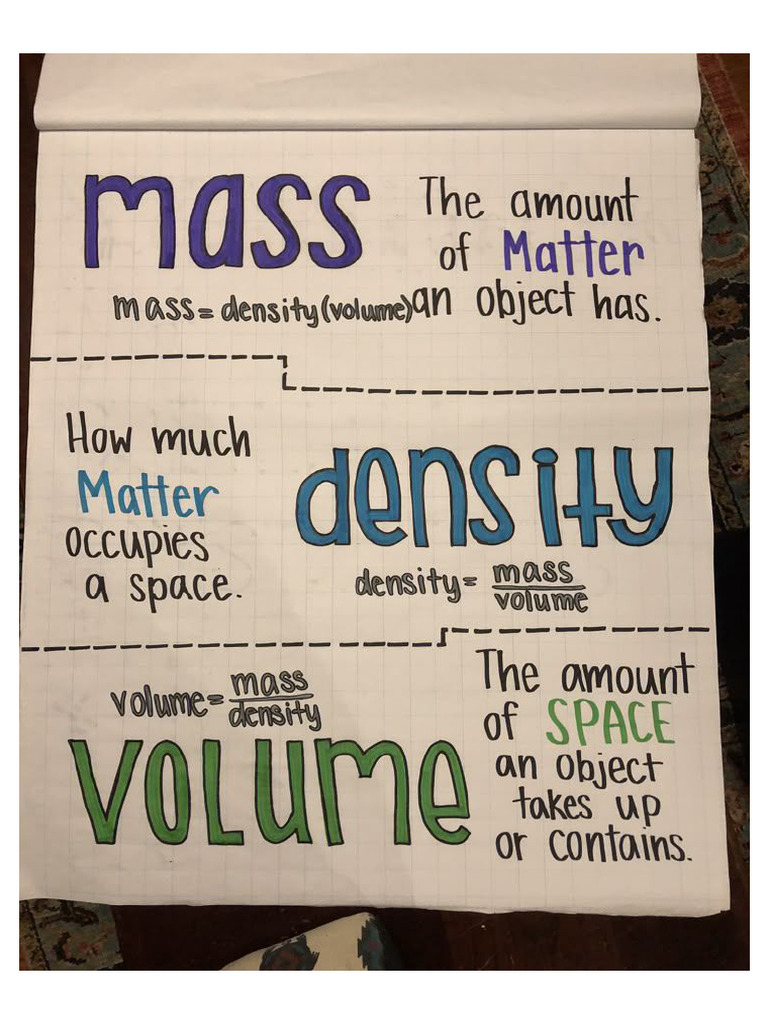 mass
The amount
of Matter
an object has.
mass = density(volume)
How much
Matter
occupies
a space.
density
density = mass
volume
volume = mass
density
volume
The amount
of SPACE
an object
takes up
or contains.